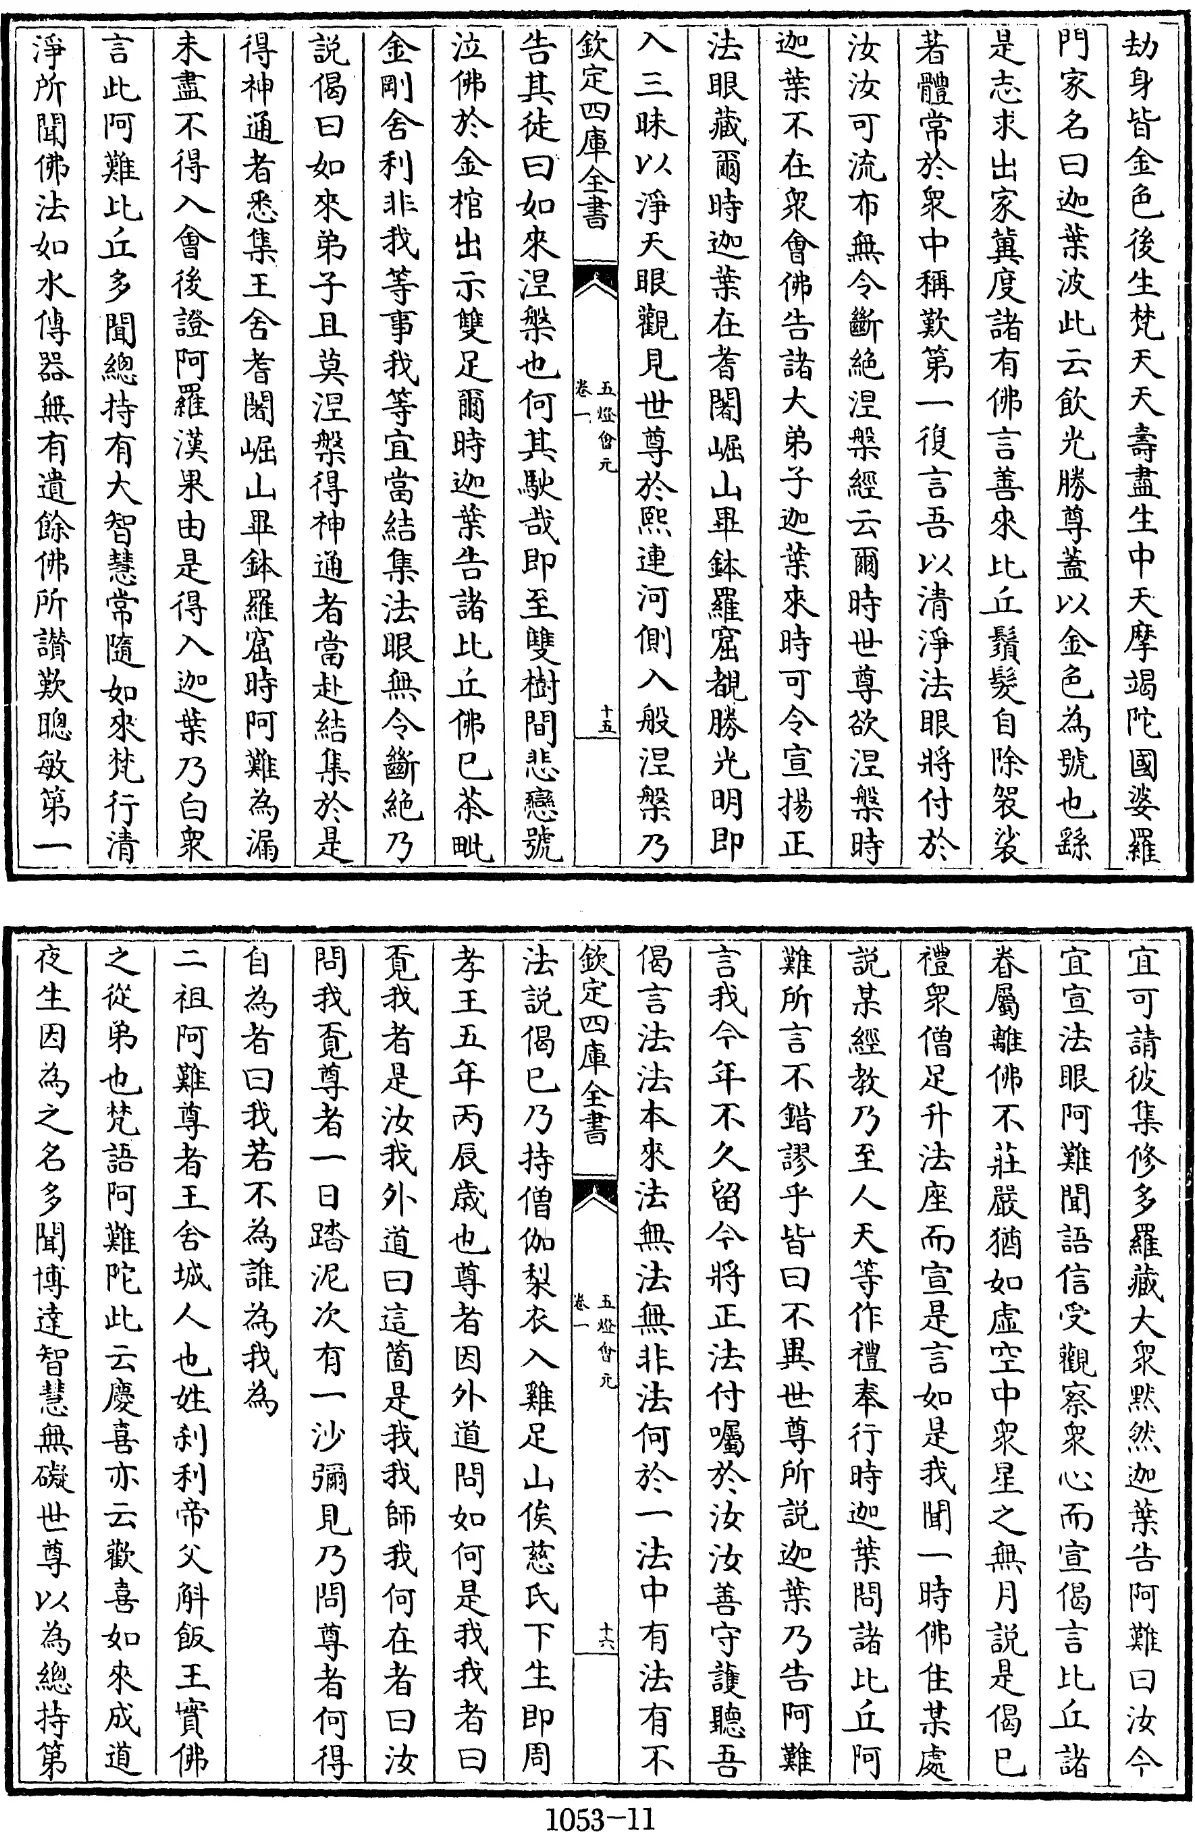 劫身皆金色後生梵天天壽盡生中天摩竭陀國婆羅
門家名曰迦葉波此云飲光勝尊蓋以金色為號也繇
是志求出家冀度諸有佛言善來比丘鬚髮自除袈裟
著體常於衆中稱歎第一復言吾以清淨法眼將付於
汝汝可流布無令斷絶涅槃經云爾時世尊欲涅槃時
迦葉不在衆會佛告諸大弟子迦葉來時可令宣揚正
法眼藏爾時迦葉在耆闍崛山畢鉢羅窟覩勝光明即
入三昧以淨天眼觀見世尊於熙連河側入般涅槃乃
欽定四庫全書
五燈會元
卷一
十五
告其徒曰如來涅槃也何其駛哉即至雙樹間悲戀號
泣佛於金棺出示雙足爾時迦葉告諸比丘佛已茶毗
金剛舍利非我等事我等宜當結集法眼無令斷絶乃
説偈曰如來弟子且莫涅槃得神通者當赴結集於是
得神通者悉集王舍耆闍崛山畢鉢羅窟時阿難為漏
未盡不得入會後證阿羅漢果由是得入迦葉乃白衆
言此阿難比丘多聞總持有大智慧常隨如來梵行清
淨所聞佛法如水傳器無有遺餘佛所讃歎聰敏第一
宜可請彼集修多羅藏大衆默然迦葉告阿難曰汝今
宜宣法眼阿難聞語信受觀察衆心而宣偈言比丘諸
眷屬離佛不莊嚴猶如虛空中衆星之無月説是偈已
禮衆僧足升法座而宣是言如是我聞一時佛住某處
説某經教乃至人天等作禮奉行時迦葉問諸比丘阿
難所言不錯謬乎皆曰不異世尊所説迦葉乃告阿難
言我今年不久留今將正法付囑於汝汝善守護聽吾
偈言法法本來法無法無非法何於一法中有法有不
欽定四庫全書
五燈會元
卷一
十六
法説偈已乃持僧伽梨衣入雞足山俟慈氏下生即周
孝王五年丙辰歳也尊者因外道問如何是我我者曰
覔我者是汝我外道曰這箇是我我師我何在者曰汝
問我覔尊者一日踏泥次有一沙彌見乃問尊者何得
自為者曰我若不為誰為我為
二祖阿難尊者王舍城人也姓刹利帝父斛飯王實佛
之從弟也梵語阿難陀此云慶喜亦云歡喜如來成道
夜生因為之名多聞博達智慧無礙世尊以為總持第
1053-11